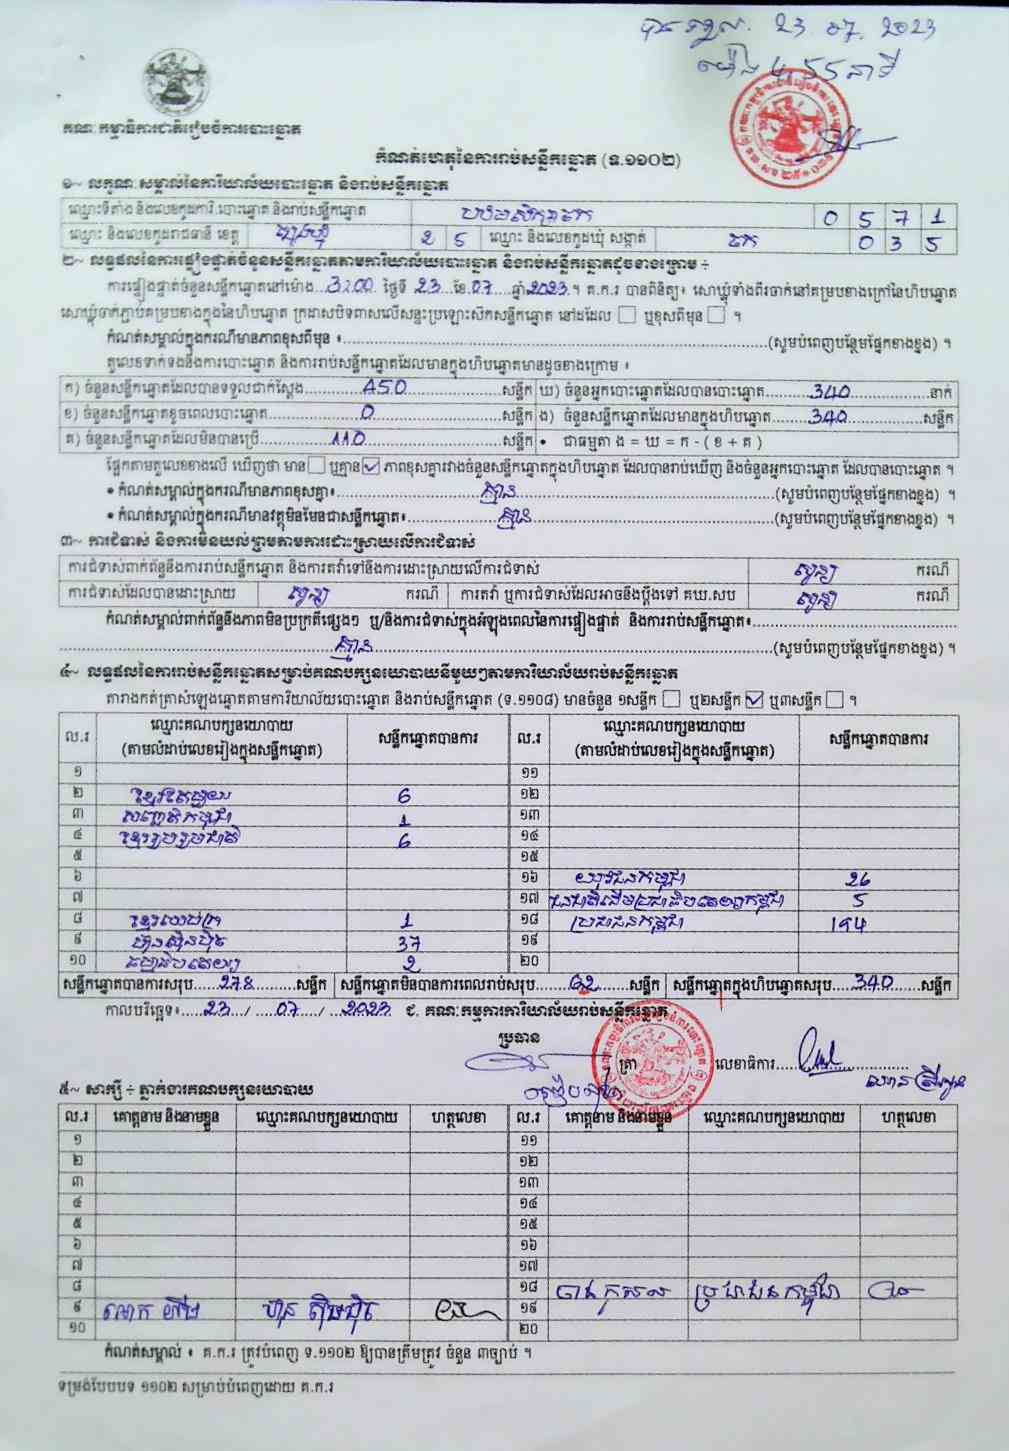 បានទទួល. 23. 07. 2023
ម៉ោង 4,55 នាទី
គណៈកម្មាធិការជាតិរៀបចំការបោះឆ្នោត
កំណត់ហេតុនៃការរាប់សន្លឹកឆ្នោត (ទ.១១០២)
១~ លក្ខណៈសម្គាល់នៃការិយាល័យបោះឆ្នោត និងរាប់សន្លឹកឆ្នោត
ឈ្មោះទីតាំង និងលេខកូដការិ.បោះឆ្នោត និងរាប់សន្លឹកឆ្នោត 0 5 7 1
ឈ្មោះ និងលេខកូដរាជធានី ខេត្ត ត្បូងឃ្មុំ 2 5 ឈ្មោះ និងលេខកូដឃុំ សង្កាត់ 0 3 5
២~ លទ្ធផលនៃការផ្ទៀងផ្ទាត់ចំនួនសន្លឹកឆ្នោតតាមការិយាល័យបោះឆ្នោត និងរាប់សន្លឹកឆ្នោតដូចខាងក្រោម ÷
ការផ្ទៀងផ្ទាត់ចំនួនសន្លឹកឆ្នោតនៅម៉ោង...3:00...ថ្ងៃទី 23...ខែ.07....ឆ្នាំ.2023.។ គ.ក.រ បានពិនិត្យ៖ សោឃ្លុំទាំងពីរចាក់នៅគម្របខាងក្រៅនៃហិបឆ្នោត
សោឃ្លុំចាក់ភ្ជាប់គម្របខាងក្នុងនៃហិបឆ្នោត ក្រដាសបិទពាសលើសន្ទះប្រឡោះសិកសន្លឹកឆ្នោត នៅដដែល ☐ ឬខុសពីមុន ☐ ។
កំណត់សម្គាល់ក្នុងករណីមានភាពខុសពីមុន ៖......(សូមបំពេញបន្ថែមផ្នែកខាងខ្នង) ។
តួលេខទាក់ទងនឹងការបោះឆ្នោត និងការរាប់សន្លឹកឆ្នោតដែលមានក្នុងហិបឆ្នោតមានដូចខាងក្រោម ៖
ក) ចំនួនសន្លឹកឆ្នោតដែលបានទទួលជាក់ស្តែង......450......សន្លឹក ឃ) ចំនួនអ្នកបោះឆ្នោតដែលបានបោះឆ្នោត......340......នាក់
ខ) ចំនួនសន្លឹកឆ្នោតខូចពេលបោះឆ្នោត......0......សន្លឹក ង) ចំនួនសន្លឹកឆ្នោតដែលមានក្នុងហិបឆ្នោត......340......សន្លឹក
គ) ចំនួនសន្លឹកឆ្នោតដែលមិនបានប្រើ......110......សន្លឹក • ជាធម្មតា ង = ឃ = ក - ( ខ + គ )
ផ្អែកតាមតួលេខខាងលើ ឃើញថា មាន ☐ ឬគ្មាន ☑ ភាពខុសគ្នារវាងចំនួនសន្លឹកឆ្នោតក្នុងហិបឆ្នោត ដែលបានរាប់ឃើញ និងចំនួនអ្នកបោះឆ្នោត ដែលបានបោះឆ្នោត ។
• កំណត់សម្គាល់ក្នុងករណីមានភាពខុសគ្នា៖......គ្មាន......(សូមបំពេញបន្ថែមផ្នែកខាងខ្នង) ។
• កំណត់សម្គាល់ក្នុងករណីមានវត្ថុមិនមែនជាសន្លឹកឆ្នោត៖......គ្មាន......(សូមបំពេញបន្ថែមផ្នែកខាងខ្នង) ។
៣~ ការជំទាស់ និងការមិនយល់ព្រមតាមការដោះស្រាយលើការជំទាស់
ការជំទាស់ពាក់ព័ន្ធនឹងការរាប់សន្លឹកឆ្នោត និងការតវ៉ាទៅនឹងការដោះស្រាយលើការជំទាស់ សូន្យ ករណី
ការជំទាស់ដែលបានដោះស្រាយ សូន្យ ករណី ការតវ៉ា ឬការជំទាស់ដែលអាចនឹងប្តឹងទៅ គឃ.សប សូន្យ ករណី
កំណត់សម្គាល់ពាក់ព័ន្ធនឹងភាពមិនប្រក្រតីផ្សេងៗ ឬ/និងការជំទាស់ក្នុងអំឡុងពេលនៃការផ្ទៀងផ្ទាត់ និងការរាប់សន្លឹកឆ្នោត៖......
......គ្មាន......(សូមបំពេញបន្ថែមផ្នែកខាងខ្នង) ។
៤~ លទ្ធផលនៃការរាប់សន្លឹកឆ្នោតសម្រាប់គណបក្សនយោបាយនីមួយៗតាមការិយាល័យរាប់សន្លឹកឆ្នោត
តារាងកត់ត្រាសំឡេងឆ្នោតតាមការិយាល័យបោះឆ្នោត និងរាប់សន្លឹកឆ្នោត (ទ.១១០៨) មានចំនួន ១សន្លឹក ☐ ឬ២សន្លឹក ☑ ឬ៣សន្លឹក ☐ ។
ល.រ ឈ្មោះគណបក្សនយោបាយ (តាមលំដាប់លេខរៀងក្នុងសន្លឹកឆ្នោត) សន្លឹកឆ្នោតបានការ ល.រ ឈ្មោះគណបក្សនយោបាយ (តាមលំដាប់លេខរៀងក្នុងសន្លឹកឆ្នោត) សន្លឹកឆ្នោតបានការ
១ ១១
២ ខ្មែរតែមួយ 6 ១២
៣ សញ្ជាតិកម្ពុជា 1 ១៣
៤ ខ្មែររួបរួមជាតិ 6 ១៤
៥ ១៥
៦ ១៦ យុវជនកម្ពុជា 26
៧ ១៧ ជនជាតិដើមប្រជាធិបតេយ្យកម្ពុជា 5
៨ 1 ១៨ ប្រជាជនកម្ពុជា 194
៩ ហ៊្វុនស៊ិនប៉ិច 37 ១៩
១០ ធម្មាធិបតេយ្យ 2 ២០
សន្លឹកឆ្នោតបានការសរុប......278......សន្លឹក សន្លឹកឆ្នោតមិនបានការពេលរាប់សរុប......62......សន្លឹក សន្លឹកឆ្នោតក្នុងហិបឆ្នោតសរុប......340......សន្លឹក
កាលបរិច្ឆេទ៖....23..../....07..../...2023 ជ. គណៈកម្មការការិយាល័យរាប់សន្លឹកឆ្នោត
ប្រធាន
ត្រា លេខាធិការ......
៥~ សាក្សី ÷ ភ្នាក់ងារគណបក្សនយោបាយ
ល.រ គោត្តនាម និងនាមខ្លួន ឈ្មោះគណបក្សនយោបាយ ហត្ថលេខា ល.រ គោត្តនាម និងនាមខ្លួន ឈ្មោះគណបក្សនយោបាយ ហត្ថលេខា
១ ១១
២ ១២
៣ ១៣
៤ ១៤
៥ ១៥
៦ ១៦
៧ ១៧
៨ ១៨ ប្រជាជនកម្ពុជា
៩ ហ៊្វុន ស៊ិនប៉ិច ១៩
១០ ២០
កំណត់សម្គាល់ ៖ គ.ក.រ ត្រូវបំពេញ ទ.១១០២ ឱ្យបានត្រឹមត្រូវ ចំនួន ៣ច្បាប់ ។
ទម្រង់បែបបទ ១១០២ សម្រាប់បំពេញដោយ គ.ក.រ